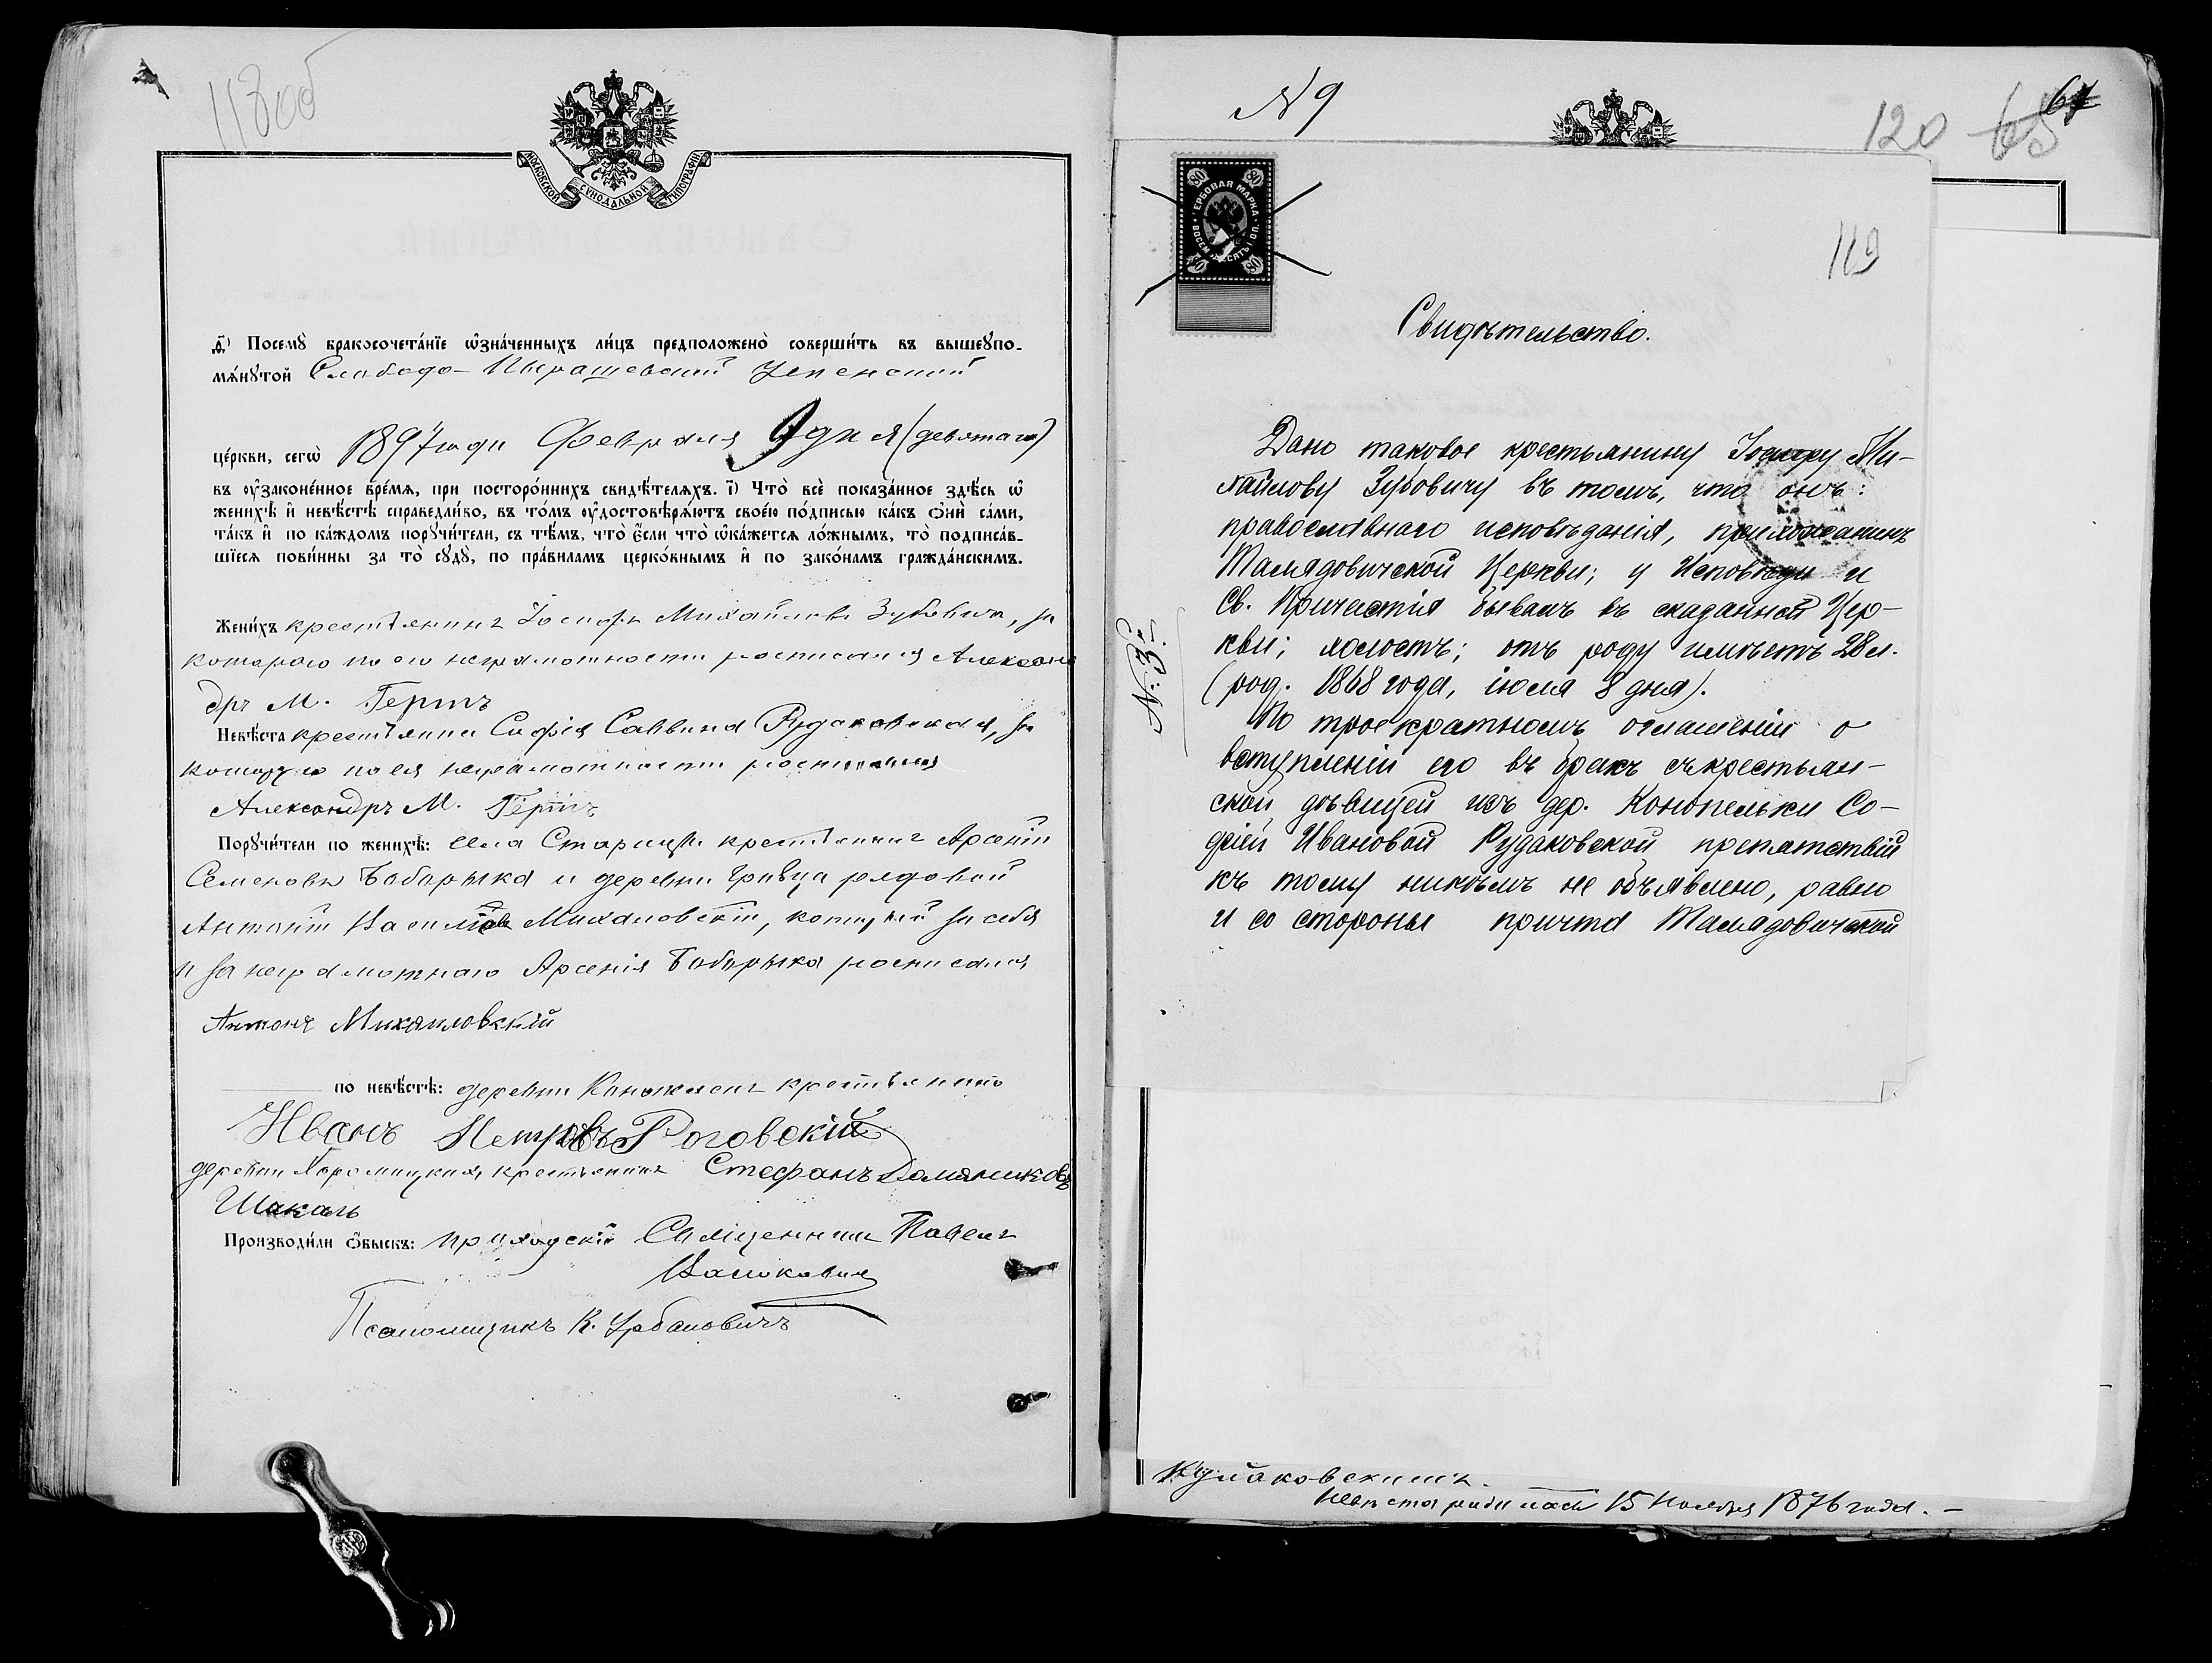 118об
МОСКОВСКОЙ СѴНОДАЛЬНОЙ ТИПОГРАФІИ
д҃) Посемꙋ̀ бракосочета́нїе ѡ҆зна́ченныхъ ли́цъ предположено̀ соверши́ть въ вышеꙋпо-
мѧ́нꙋтой Слободо-Пырашевской Успенской
це́ркви, сегѡ̀ 1897 года Февраля 9 дня (девятаго)
въ ᲂу҆зако́ненное вре́мѧ, при посторо́ннихъ свидѣ́телѧхъ. і҃) Что̀ всѐ показа́нное здѣ́сь ѡ҆
женихѣ̀ и҆ невѣ́стѣ справедли́во, въ то́мъ ᲂу҆достовѣрѧ́ютъ свое́ю по́дписью ка́къ ѻ҆нѝ са́ми,
та́къ и҆ по ка́ждомъ порꙋчи́тели, съ тѣ́мъ, что̀ є҆́сли что̀ ѡ҆ка́жетсѧ ло́жнымъ, то̀ подписа́в-
шїесѧ пови́нны за то̀ сꙋдꙋ̀, по пра́виламъ церко́внымъ и҆ по зако́намъ гражда́нскимъ.
Жени́хъ крестьянинъ Іосифъ Михайловъ Зубовичъ, за
котораго по его неграмотности росписался Алексан
дръ М. Гертъ
Невѣ́ста крестьянка Софія Саввина Рудаковская, за
которую по ея неграмотности росписался
Александръ М. Гертъ
Порꙋчи́тели по женихѣ̀: села Старицы крестьянинъ Арсеній
Семеновъ Бобрыка и деревни Гривца рядовой
Антоній Михаловскій, который за себя
и за неграмотнаго Арсенія Бобрыка росписался
Антонъ Михаиловскій
по невѣ́стѣ: деревни крестьянинъ
Иванъ Петровъ Роговскій
деревни крестьянинъ Стефанъ Домяниковъ
Шакаль
Производи́ли ѻ҆́быскъ: приходскій Священникъ Павелъ
Псаломщикъ К. Урбановичъ
N 9
120 65 64
ГЕРБОВАЯ МАРКА ВОСЕМЬДЕСЯТЪ КОП.
80 80 80 80
119
Свидѣтельство.
Дано таковое крестьянину Іосифу Ми-
хайлову Зубовичу въ томъ, что онъ:
православнаго исповѣданія, прихожанинъ
Тамядовичской Церкви; у Исповѣди и
Св. Причастія бываетъ въ сказанной Цер-
кви; холостъ; отъ роду имѣетъ 28 л.
(род. 1868 года, іюля 8 дня).
N: 3:
По троекратномъ оглашеніи о
вступленіи его въ бракъ съ крестьян-
ской дѣвицей изъ дер. Конопельки Со-
фіей Ивановой Рудаковской препятствій
къ тому никѣмъ не объявлено, равно
и со стороны причта Тамядовичской
Невѣста родилась 15 Ноября 1876 года. —